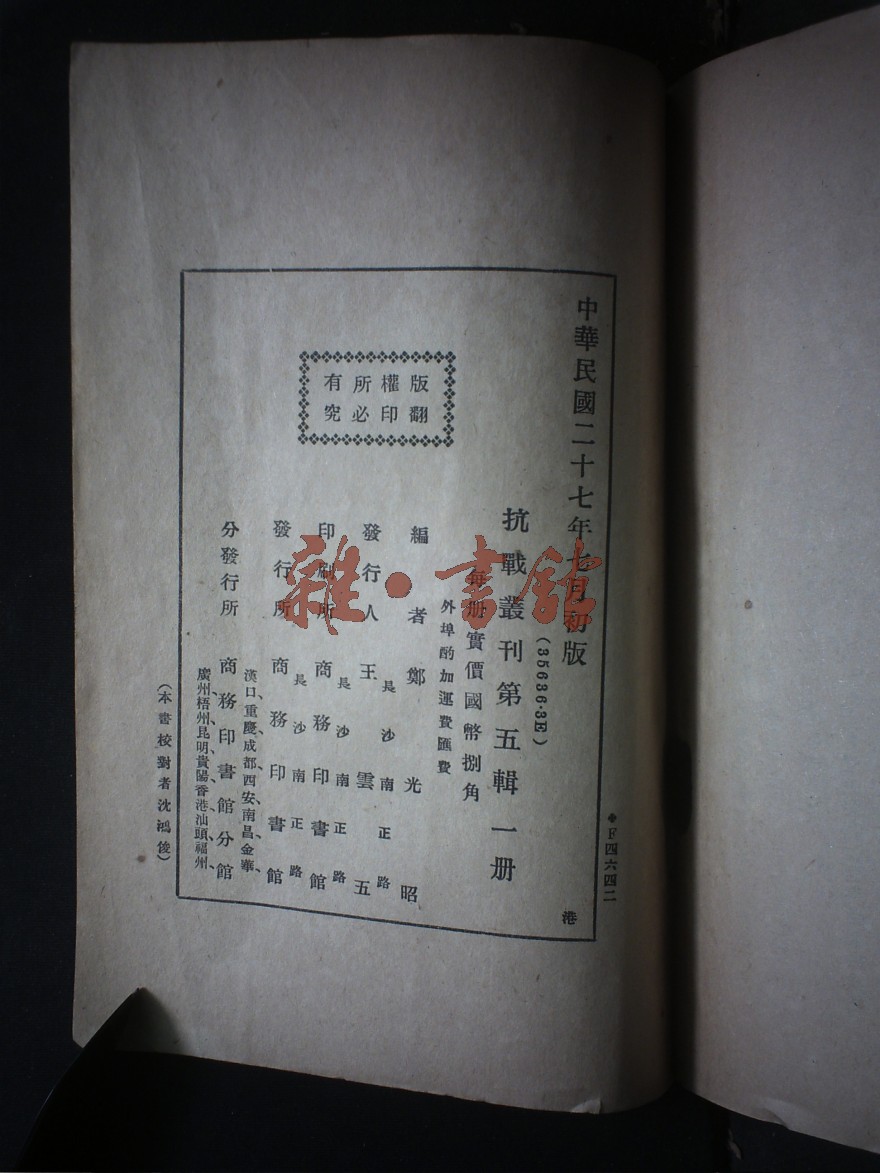 ◆F四六四二
中華民國二十七年七月初版
港
(35636·3E)
抗戰叢刊第五輯一册
每册實價國幣捌角
外埠酌加運費匯費
編者鄭光昭
長沙南正路
發行人王雲五
長沙南正路
印刷所商務印書館
長沙南正路
發行所商務印書館
漢口、重慶、成都、西安、南昌、金華、
分發行所商務印書館分館
廣州、梧州、昆明、貴陽、香港、汕頭、福州、
(本書校對者沈鴻俊)
版權所有
翻印必究
雜·書館